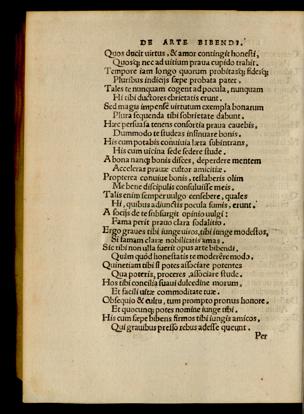 DE ARTE BIBENDI,
Quos ducit virtus, & amor contingit honesti,
Quosq; nec ad uitium praua cupido trahit.
Tempore iam longo quorum probitasq; fidesq;
Pluribus indicijs sæpe probata patet.
Tales te nunquam cogent ad pocula, nunquam
Hi tibi ductores ebrietatis erunt.
Sed magis impense uirtutum exempla bonarum
Plura sequenda tibi sobrietate dabunt.
Hæc persuasa tenens consortia praua cauebis,
Dummodo te studeas insinuare bonis.
His cum potabis conuiuia læta subintrans,
His cum uicina sede sedere stude.
A bona nanq; bonis disces, deperdere mentem
Acceleras prauæ cultor amicitiæ.
Propterea conuiuæ bonis, testaberis olim
Me bene discipulis consuluisse meis.
Talis enim semper uulgo censebere, quales
Hi, quibus adiunctis pocula sumis, erunt.
A socijs de te subsurgit opinio uulgi:
Fama perit prauo clara sodalitio.
Ergo graues tibi iunge uiros, tibi iunge modestos,
Si famam claræ nobilitatis amas.
Sic tibi non ulla fuerit opus arte bibendi,
Quàm quòd honestatis te moderêre modo.
Quinetiam tibi si potes associare potentes
Quà poteris, proceres, associare stude.
Hos tibi concilia suaui dulcedine morum,
Et facili uitæ commoditate tuæ.
Obsequio & cultu, tum prompto pronus honore,
Et quocunq; potes nomine iunge tibi.
His cum sæpe bibens firmos tibi iungis amicos,
Qui grauibus presso rebus adesse queunt.
Per